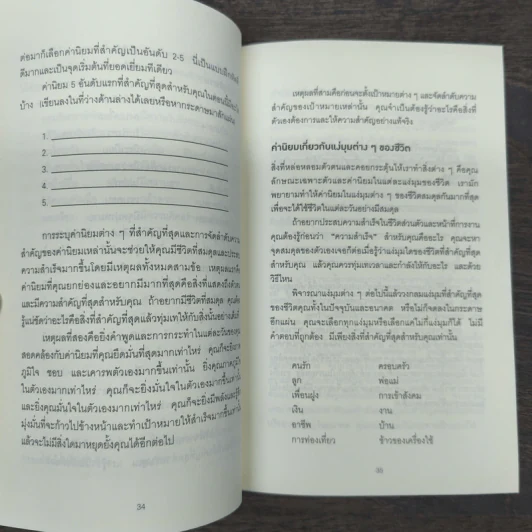 ต่อมาก็เลือกค่านิยมที่สำคัญเป็นอันดับ 2-5 นี่เป็นแบบฝึกหัดที่
ดีมากและเป็นจุดเริ่มต้นที่ยอดเยี่ยมทีเดียว
ค่านิยม 5 อันดับแรกที่สำคัญที่สุดสำหรับคุณในตอนนี้มีอะไร
บ้าง (เขียนลงในที่ว่างด้านล่างได้เลยหรือหากระดาษมาสักแผ่น)
1.
2.
3.
4.
5.
การระบุค่านิยมต่าง ๆ ที่สำคัญที่สุดและการจัดลำดับความ
สำคัญของค่านิยมเหล่านั้นจะช่วยให้คุณมีชีวิตที่สมดุลและประสบ
ความสำเร็จมากขึ้นโดยมีเหตุผลทั้งหมดสามข้อ เหตุผลแรกคือ
ค่านิยมที่คุณยกย่องและอยากมีมากที่สุดคือสิ่งที่แสดงถึงตัวคุณ
และมีความสำคัญที่สุดสำหรับคุณ ถ้าอยากมีชีวิตที่สมดุล คุณต้อง
รู้แน่ชัดว่าอะไรคือสิ่งที่สำคัญที่สุดแล้วทุ่มเทให้กับสิ่งนั้นอย่างเต็มที่
เหตุผลที่สองคือยิ่งคำพูดและการกระทำในแต่ละวันของคุณ
สอดคล้องกับค่านิยมที่คุณยึดมั่นที่สุดมากเท่าไหร่ คุณก็จะยิ่ง
ภูมิใจ ชอบ และเคารพตัวเองมากขึ้นเท่านั้น ยิ่งคุณภาคภูมิใจ
ในตัวเองมากเท่าไหร่ คุณก็ยิ่งมั่นใจในตัวเองมากขึ้นเท่านั้น
และยิ่งคุณมั่นใจในตัวเองมากเท่าไหร่ คุณก็จะยิ่งมีพลังและ
มุ่งมั่นที่จะก้าวไปข้างหน้าและทำเป้าหมายให้สำเร็จมากขึ้นเท่านั้น
แล้วจะไม่มีสิ่งใดมาหยุดยั้งคุณได้อีกต่อไป
34
เหตุผลที่สามคือก่อนจะตั้งเป้าหมายต่าง ๆ และจัดลำดับความ
สำคัญของเป้าหมายเหล่านั้น คุณจำเป็นต้องรู้ว่าอะไรคือสิ่งที่
ตัวเองต้องการและให้ความสำคัญอย่างแท้จริง
ค่านิยมเกี่ยวกับแง่มุมต่าง ๆ ของชีวิต
สิ่งที่หล่อหลอมตัวตนและคอยกระตุ้นให้เราทำสิ่งต่าง ๆ คือคุณ
ลักษณะเฉพาะตัวและค่านิยมในแต่ละแง่มุมของชีวิต เรามัก
พยายามทำให้ค่านิยมในแง่มุมต่าง ๆ ของชีวิตสมดุลกันมากที่สุด
เพื่อจะได้ใช้ชีวิตในแต่ละวันอย่างมีสมดุล
ถ้าอยากประสบความสำเร็จในชีวิตส่วนตัวและหน้าที่การงาน
คุณต้องรู้ก่อนว่า “ความสำเร็จ” สำหรับคุณคืออะไร คุณจะหา
จุดสมดุลของตัวเองเจอก็ต่อเมื่อรู้ว่าแง่มุมใดของชีวิตที่สำคัญที่สุด
สำหรับคุณ แล้วคุณควรทุ่มเทเวลาและกำลังให้กับอะไร และด้วย
วิธีไหน
พิจารณาแง่มุมต่าง ๆ ต่อไปนี้แล้ววงกลมแง่มุมที่สำคัญที่สุด
ของชีวิตคุณทั้งในปัจจุบันและอนาคต หรือไม่ก็จดลงในกระดาษ
อีกแผ่น คุณจะเลือกทุกแง่มุมหรือเลือกแค่ไม่กี่แง่มุมก็ได้ ไม่มี
คำตอบที่ถูกต้อง มีเพียงสิ่งที่สำคัญที่สุดสำหรับคุณเท่านั้น
คนรัก ครอบครัว
ลูก พ่อแม่
เพื่อนฝูง การเข้าสังคม
เงิน งาน
อาชีพ บ้าน
การท่องเที่ยว ข้าวของเครื่องใช้
35